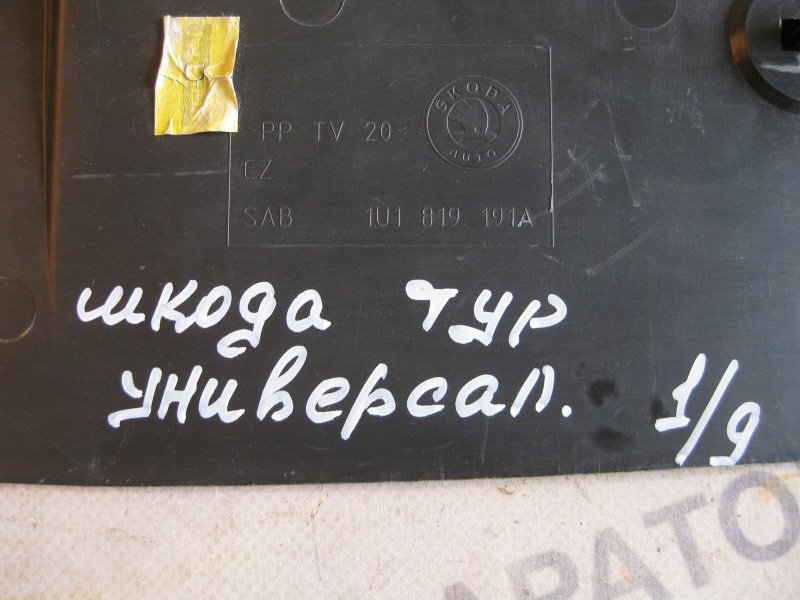 ŠKODA
AUTO
>PP TV 20<
CZ
SAB 1U1 819 191A
шкода тур
универсал. 1/9
АРАТО